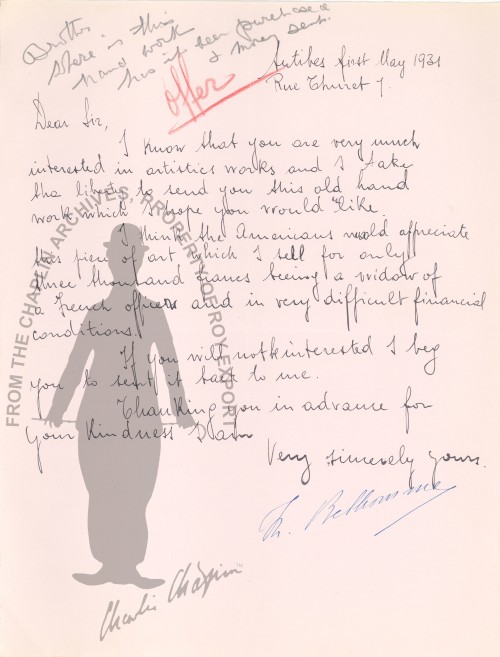 where is this
hand work
has it been purchased
& money sent.
offer
Antibes first May 1931
Rue Thuret 7.
Dear Sir,
I know that you are very much
interested in artistics works and I take
the liberty to send you this old hand
work which I hope you would like.
I think the Americans would appreciate
this piece of art which I sell for only
three thousand francs being a widow of
a French officer and in very difficult financial
conditions.
If you will not interested I beg
you to sent it back to me.
Thanking you in advance for
your kindness I am
Very sincerely yours.
FROM THE CHAPLIN ARCHIVES, PROPERTY OF ROY EXPORT
Charlie Chaplin™